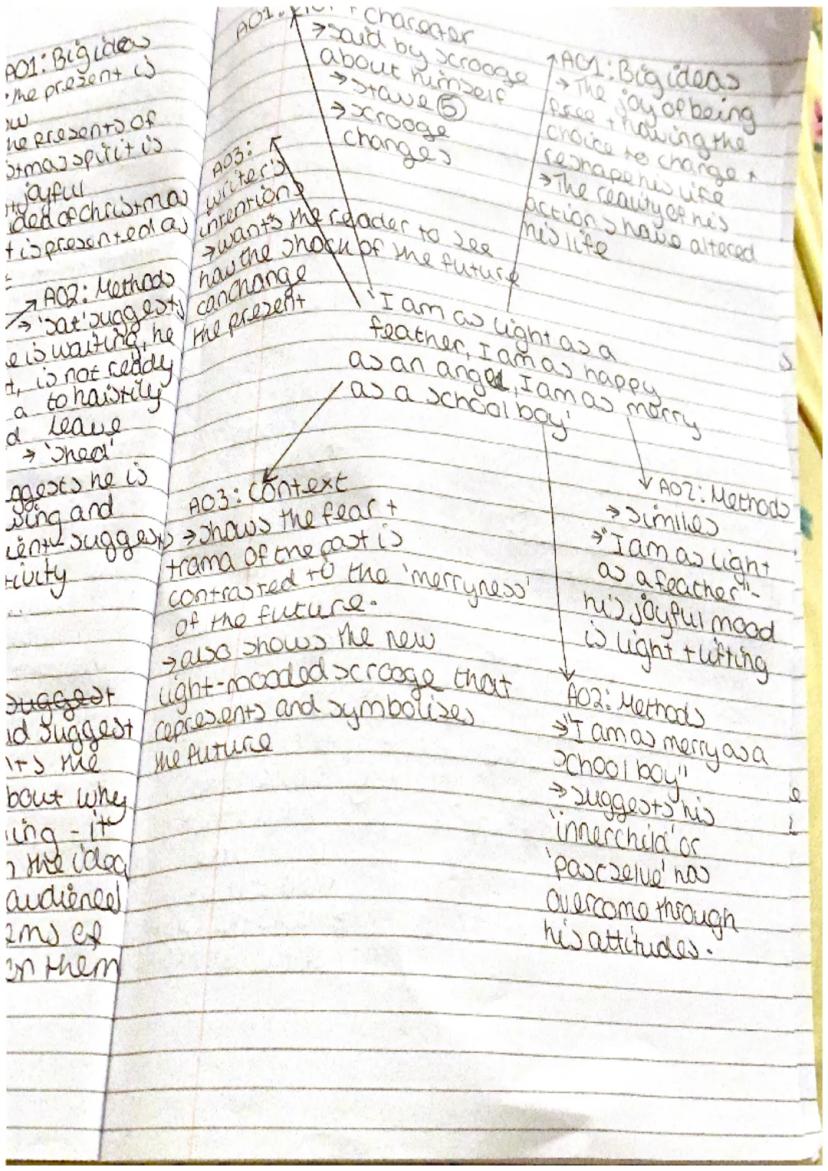 AO1: Big ideas
the present is
he presents of
stmas spirit is
joyful
ded of christmas
t is presented as
AO2: Methods
→ 'sat' suggests
e is waiting, he
t, is not ready
a to hastily
d leave
→ 'shed'
ggests he is
sing and
ient - suggests
tivity
suggest
id suggest
its the
bout why
ing - it
n the idea
audience
ems of
on them
AO1: Plot + character
→ said by scrooge
about himself
→ stave 5
→ scrooge
changes
AO1: Big ideas
→ The joy of being
free + having the
choice to change +
reshape his life
→ The reality of his
actions have altered
his life
AO3:
writer's
intentions
→ wants the reader to see
how the shock of the future
can change
the present
'I am as light as a
feather, I am as happy
as an angel, I am as merry
as a school boy'
AO3: Context
→ shows the fear +
trama of the past is
contrasted to the 'merryness'
of the future.
→ also shows the new
light-mooded scrooge that
represents and symbolizes
the future
AO2: Methods
→ similes
→ "I am as light
as a feather" -
his joyful mood
is light + lifting
AO2: Methods
→ "I am as merry as a
school boy"
→ suggests his
'inner child' or
'past selve' has
overcome through
his attitudes.